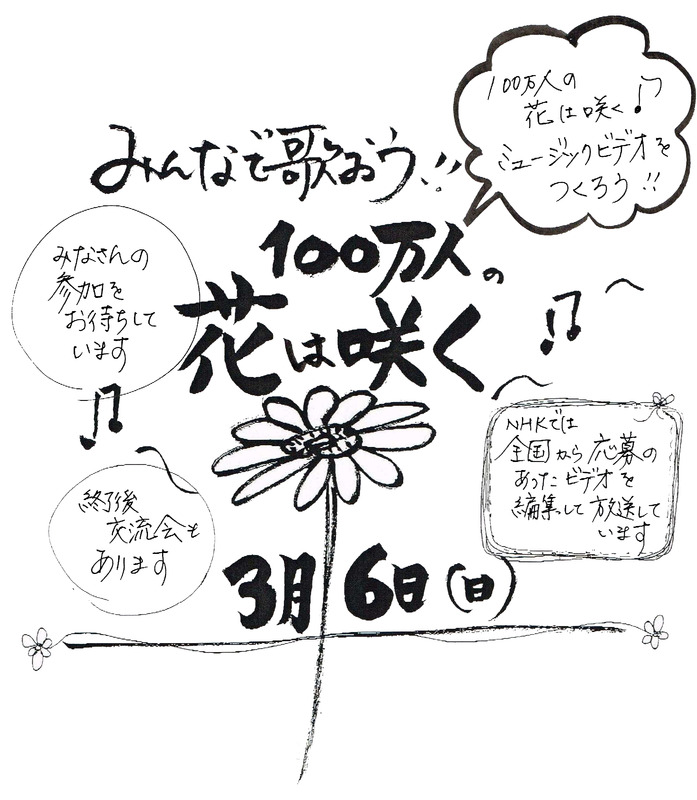 100万人の
花は咲く♪
ミュージックビデオを
つくろう!!
みんなで歌おう!!
100万人の
花は咲く
みなさんの
参加を
お待ちして
います
NHKでは
全国から応募の
あったビデオを
編集して放送して
います
終了後
交流会も
あります
3月6日(日)